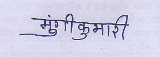 मुंगी कुमारी